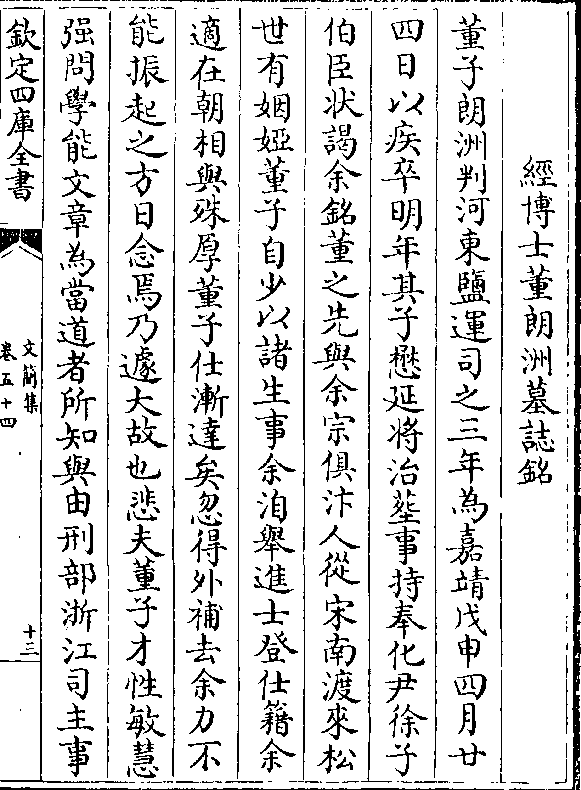 經博士董朗洲墓誌銘
董子朗洲判河東鹽運司之三年為嘉靖戊申四月廿
四日以疾卒明年其子懋延将治塟事持奉化尹徐子
伯臣状謁余銘董之先與余宗俱汴人從宋南渡來松
世有姻婭董子自少以諸生事余洎舉進士登仕籍余
適在朝相與殊厚董子仕漸達矣忽得外補去余力不
能振起之方日念焉乃遽大故也悲夫董子才性敏慧
强問學能文章為當道者所知與由刑部浙江司主事
欽定四庫全書
文簡集
卷五十四
十三